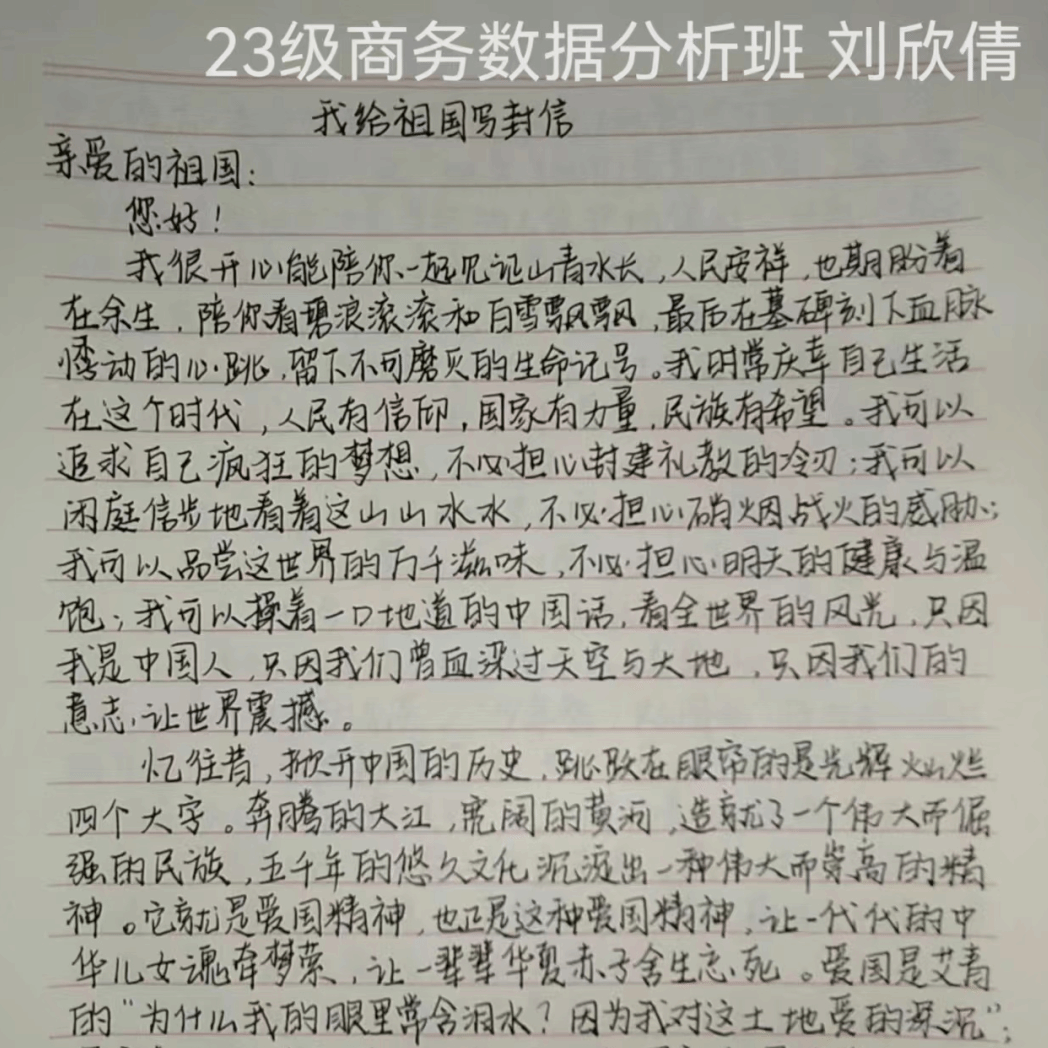 23级商务数据分析班 刘欣倩
我给祖国写封信
亲爱的祖国:
您好!
我很开心能陪你一起见证山青水长,人民安祥,也期盼着
在余生,陪你看碧浪滚滚和白雪飘飘,最后在墓碑刻下血脉
悸动的心跳,留下不可磨灭的生命记号。我时常庆幸自己生活
在这个时代,人民有信仰,国家有力量,民族有希望。我可以
追求自己疯狂的梦想,不必担心封建礼教的冷刃;我可以
闲庭信步地看着这山山水水,不必担心硝烟战火的威胁;
我可以品尝这世界的万千滋味,不必担心明天的健康与温
饱;我可以操着一口地道的中国话,看全世界的风光,只因
我是中国人,只因我们曾血染过天空与大地,只因我们的
意志让世界震撼。
忆往昔,掀开中国的历史,跳跃在眼帘的是光辉灿烂
四个大字。奔腾的大江,宽阔的黄河,造就了一个伟大而倔
强的民族,五千年的悠久文化沉淀出一种伟大而崇高的精
神。它就是爱国精神,也正是这种爱国精神,让一代代的中
华儿女魂牵梦萦,让一辈辈华夏赤子舍生忘死。爱国是艾青
的“为什么我的眼里常含泪水?因为我对这土地爱的深沉”;